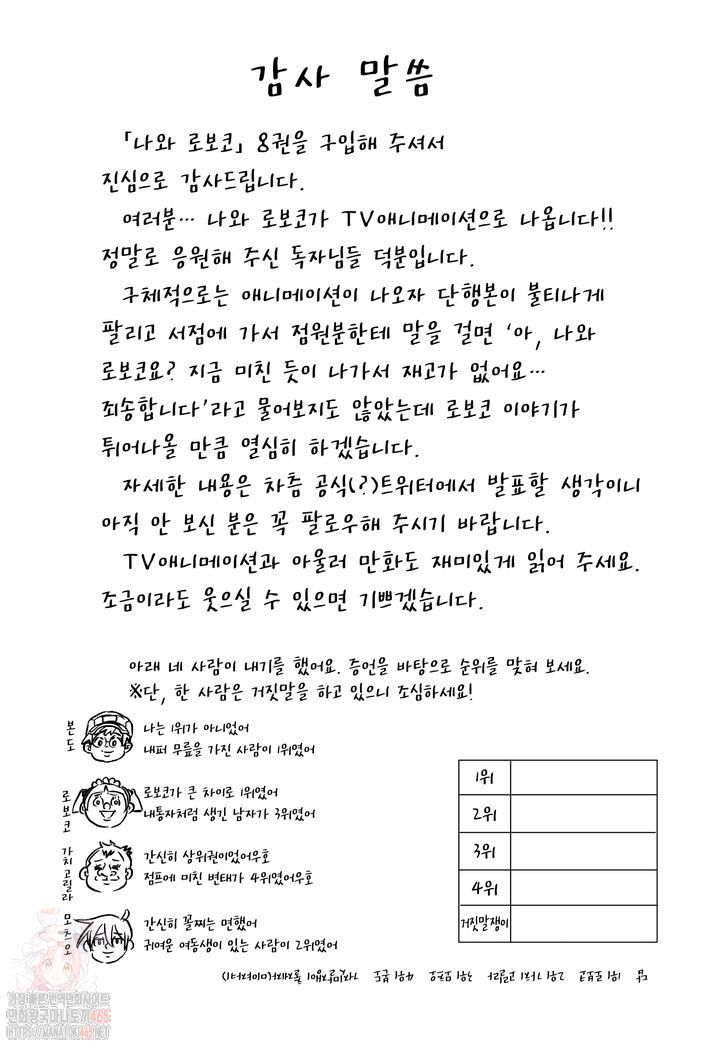 감사 말씀
「나와 로보코」 8권을 구입해 주셔서
진심으로 감사드립니다.
여러분… 나와 로보코가 TV애니메이션으로 나옵니다!!
정말로 응원해 주신 독자님들 덕분입니다.
구체적으로는 애니메이션이 나오자 단행본이 불티나게
팔리고 서점에 가서 점원분한테 말을 걸면 ‘아, 나와
로보코요? 지금 미친 듯이 나가서 재고가 없어요…
죄송합니다’라고 물어보지도 않았는데 로보코 이야기가
튀어나올 만큼 열심히 하겠습니다.
자세한 내용은 차츰 공식(?)트위터에서 발표할 생각이니
아직 안 보신 분은 꼭 팔로우해 주시기 바랍니다.
TV애니메이션과 아울러 만화도 재미있게 읽어 주세요.
조금이라도 웃으실 수 있으면 기쁘겠습니다.
아래 네 사람이 내기를 했어요. 증언을 바탕으로 순위를 맞혀 보세요.
※단, 한 사람은 거짓말을 하고 있으니 조심하세요!
본도
나는 1위가 아니었어
내퍼 무릎을 가진 사람이 1위였어
로보코
로보코가 큰 차이로 1위였어
내통자처럼 생긴 남자가 3위였어
가치고릴라
간신히 상위권이었어우호
점프에 미친 변태가 4위였어우호
모츠오
간신히 꼴찌는 면했어
귀여운 여동생이 있는 사람이 2위였어
1위
2위
3위
4위
거짓말쟁이
가장빠른 번역만화사이트
만화왕국마나토끼465
HTTPS://MANATOKI465.NET